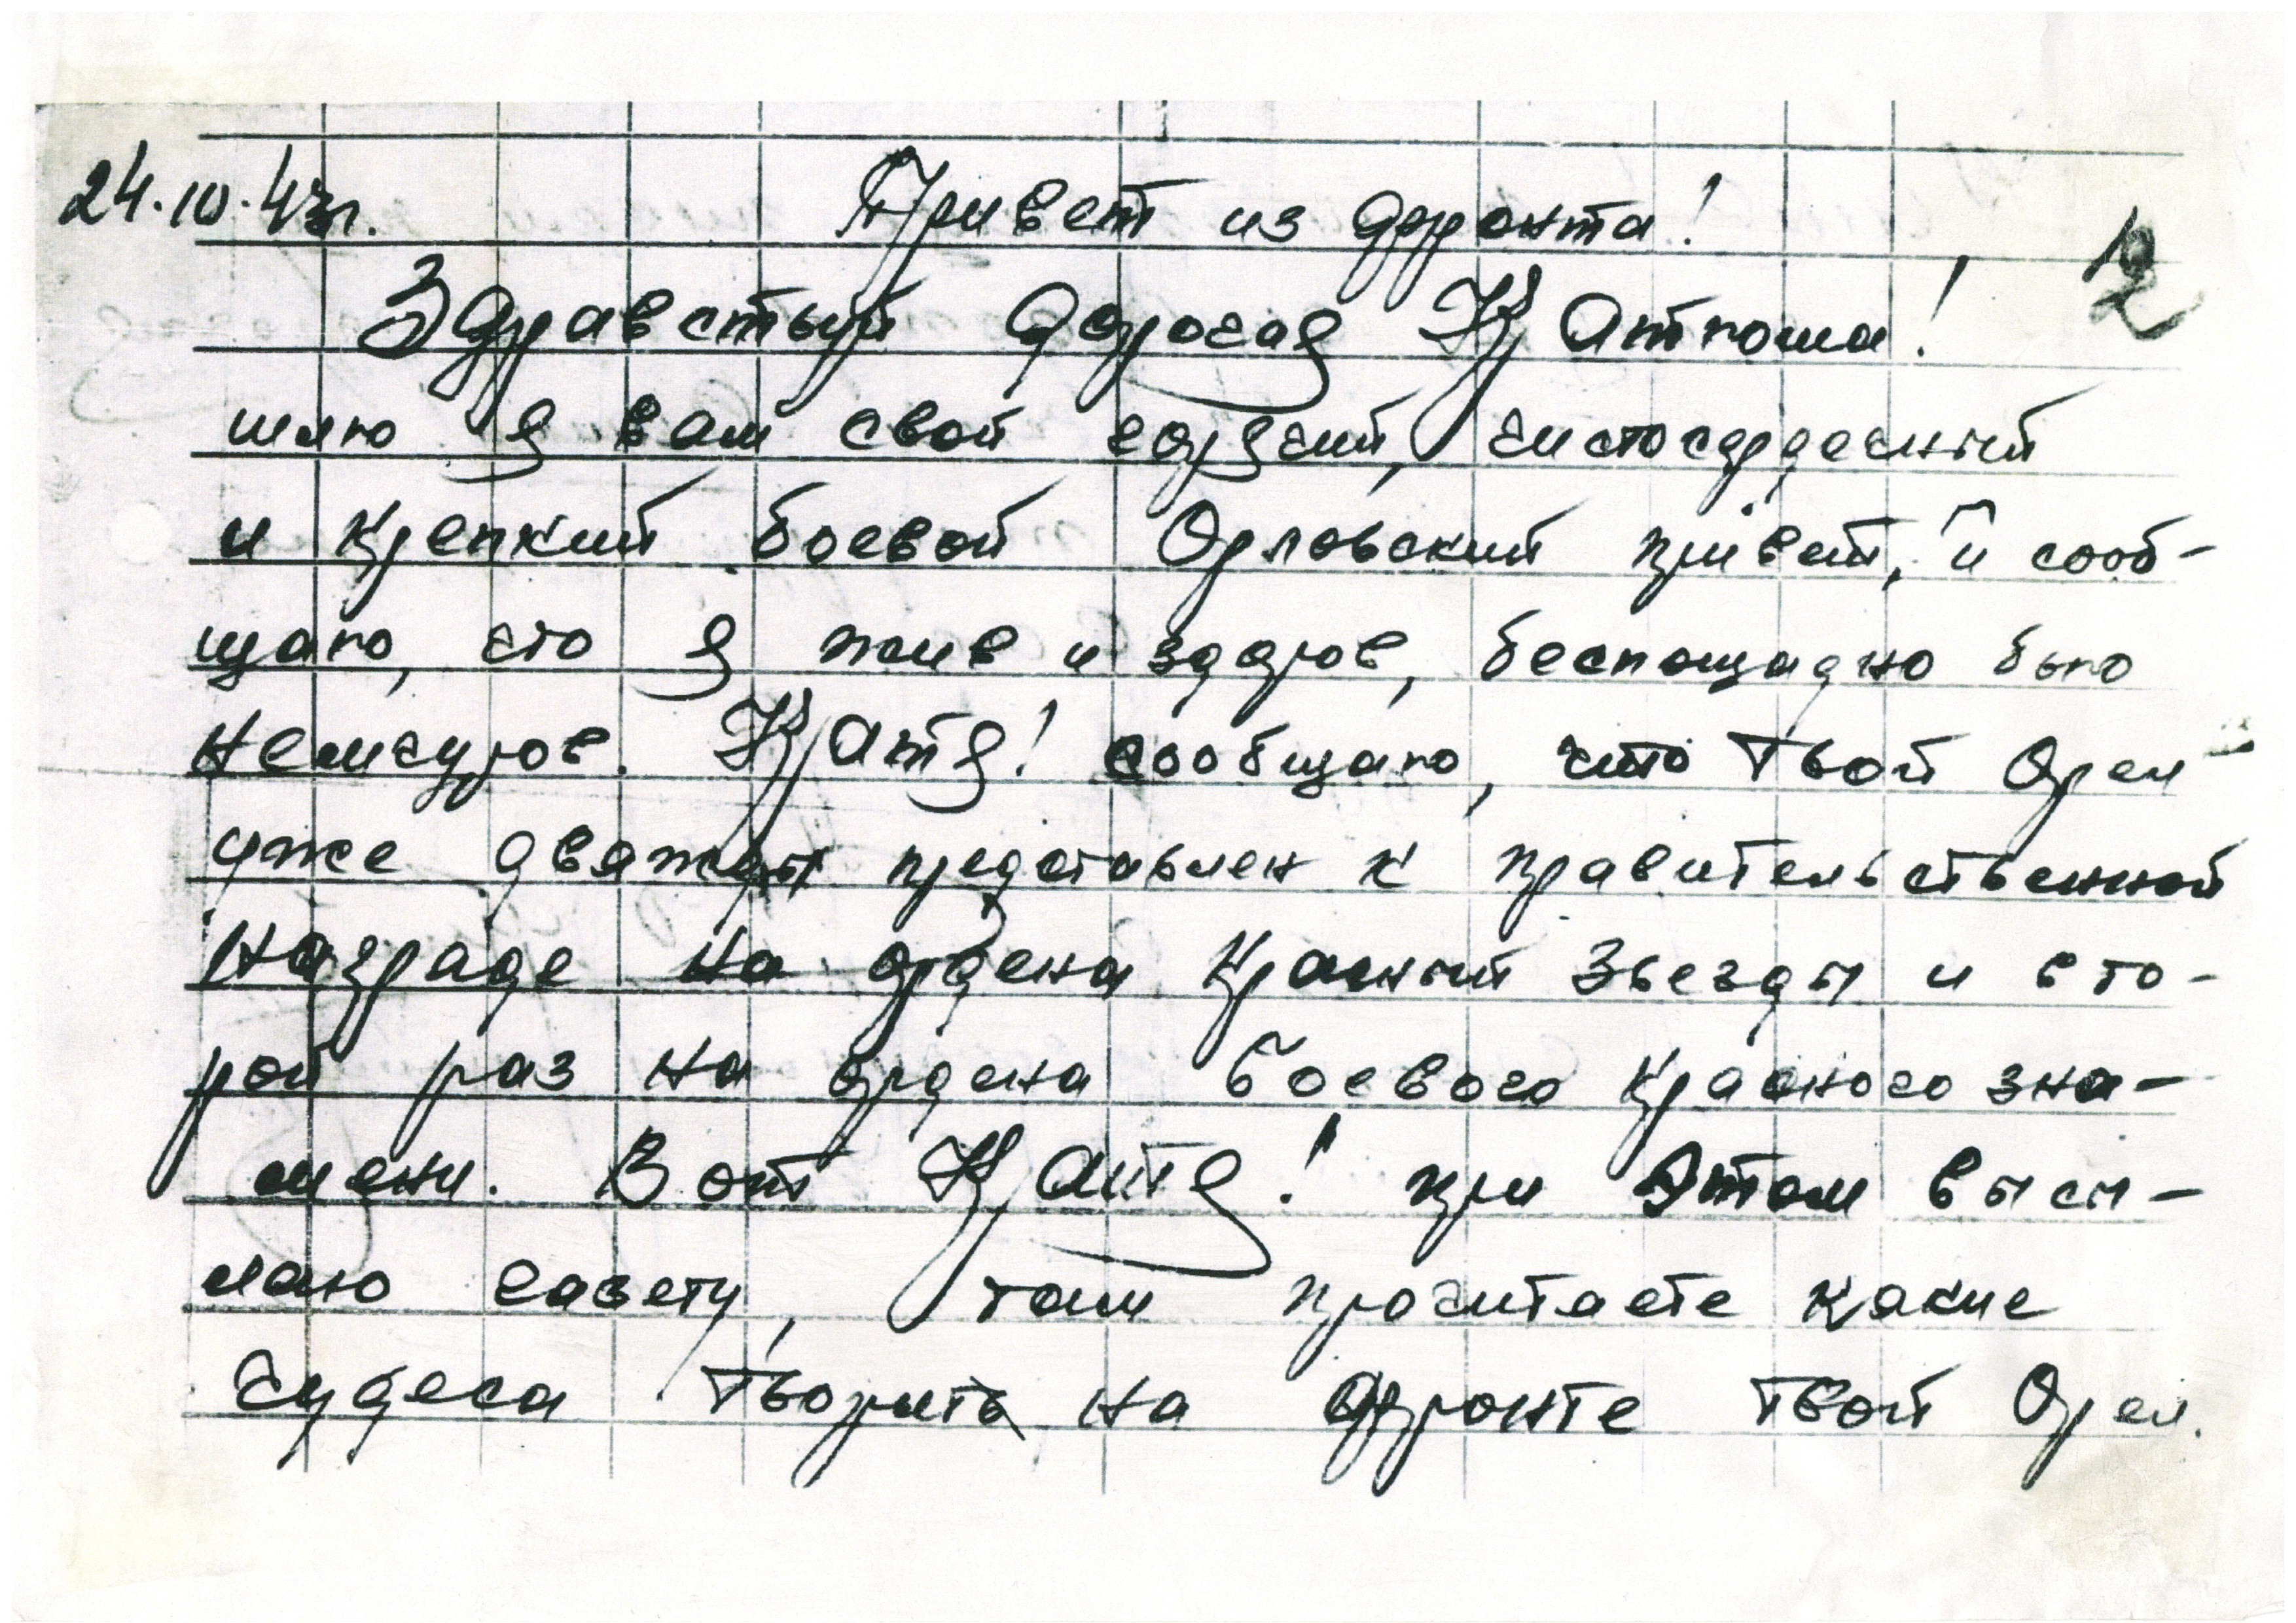 24.10.43г. Привет из фронта!
2
Здравствуй дорогая Катюша!
шлю я вам свой горячий, чистосердечный
и крепкий боевой Орловский привет, и сооб-
щаю, что я жив и здоров, беспощадно бью
немчуров. Катя! сообщаю, что твой Орел
уже дважды представлен к правительственной
награде на ордена Красный Звезды и вто-
рой раз на ордена Боевого Красного зна-
мени. Вот Катя! при этом высы-
лаю газету, там прочитаете какие
чудеса творить на фронте твой Орел.